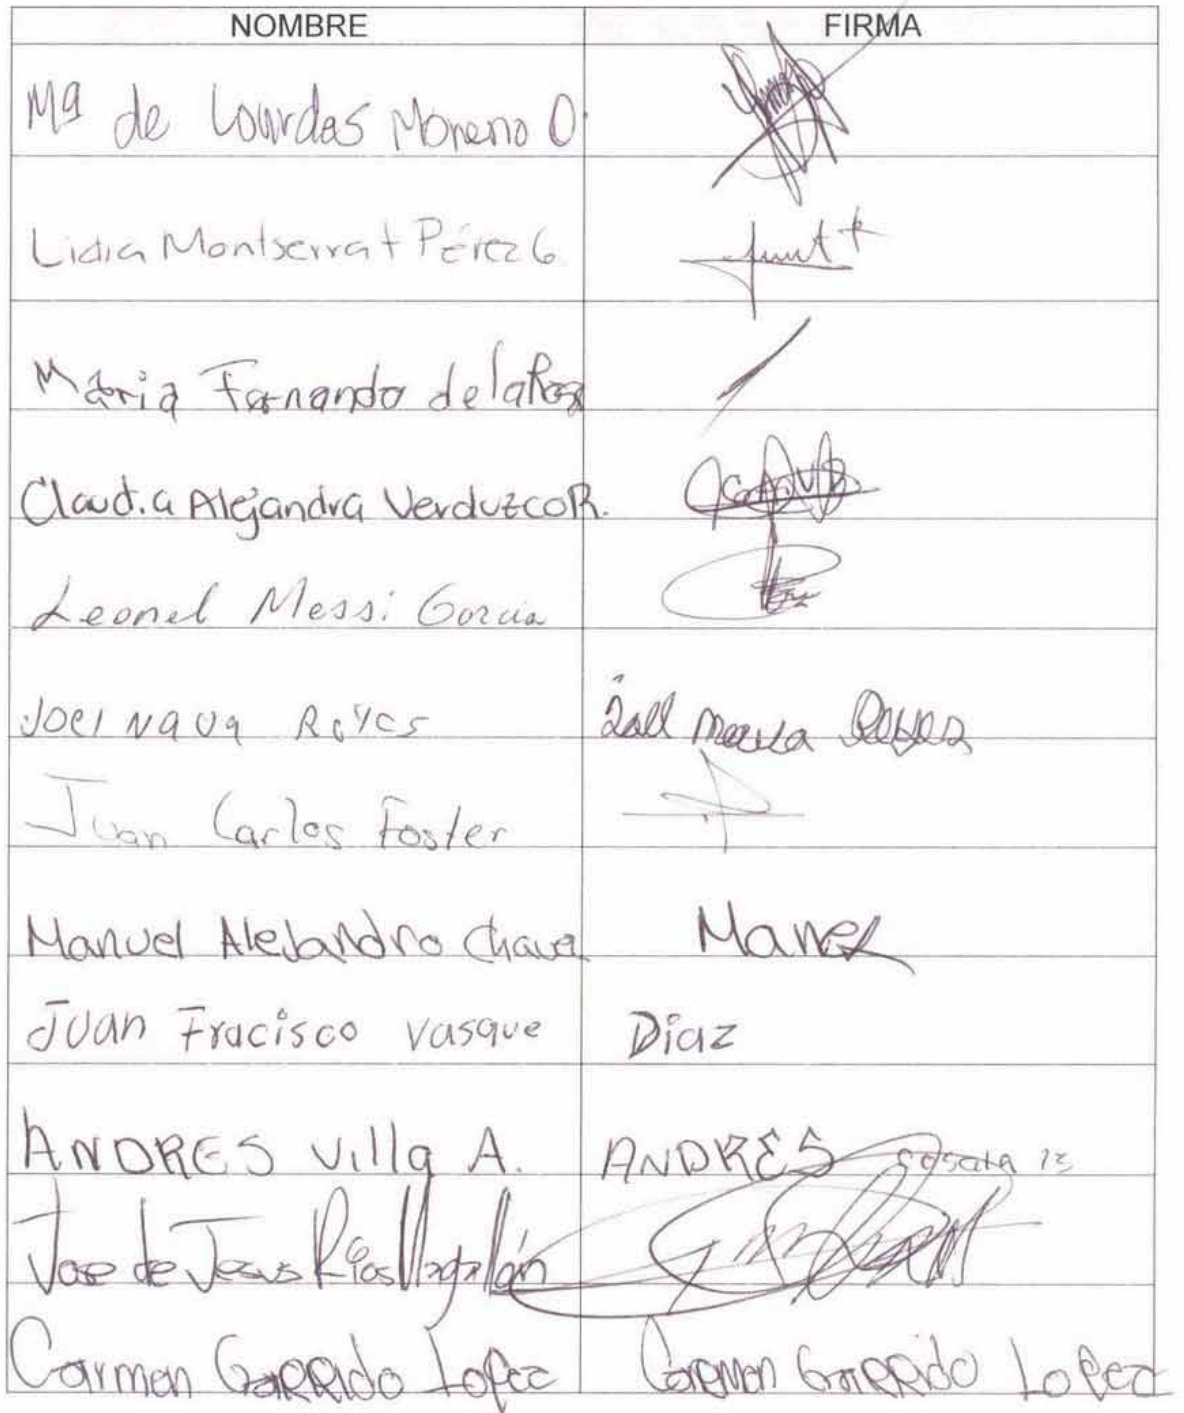 NOMBRE FIRMA
Mª de Lourdas Moreno O.
Lidia Montserrat Pérez G
Maria Fernanda de la Rosa
Claudia Alejandra Verduzco R.
Leonel Messi Garcia
Joel Nava Reyes
Juan Carlos Foster
Manuel Alejandro Chavez Manez
Juan Fracisco vasque Diaz
ANDRES Villa A. ANDRES
Jose de Jesus Rios Magallán
Carmen Garrido Lopez Carmen Garrido Lopez